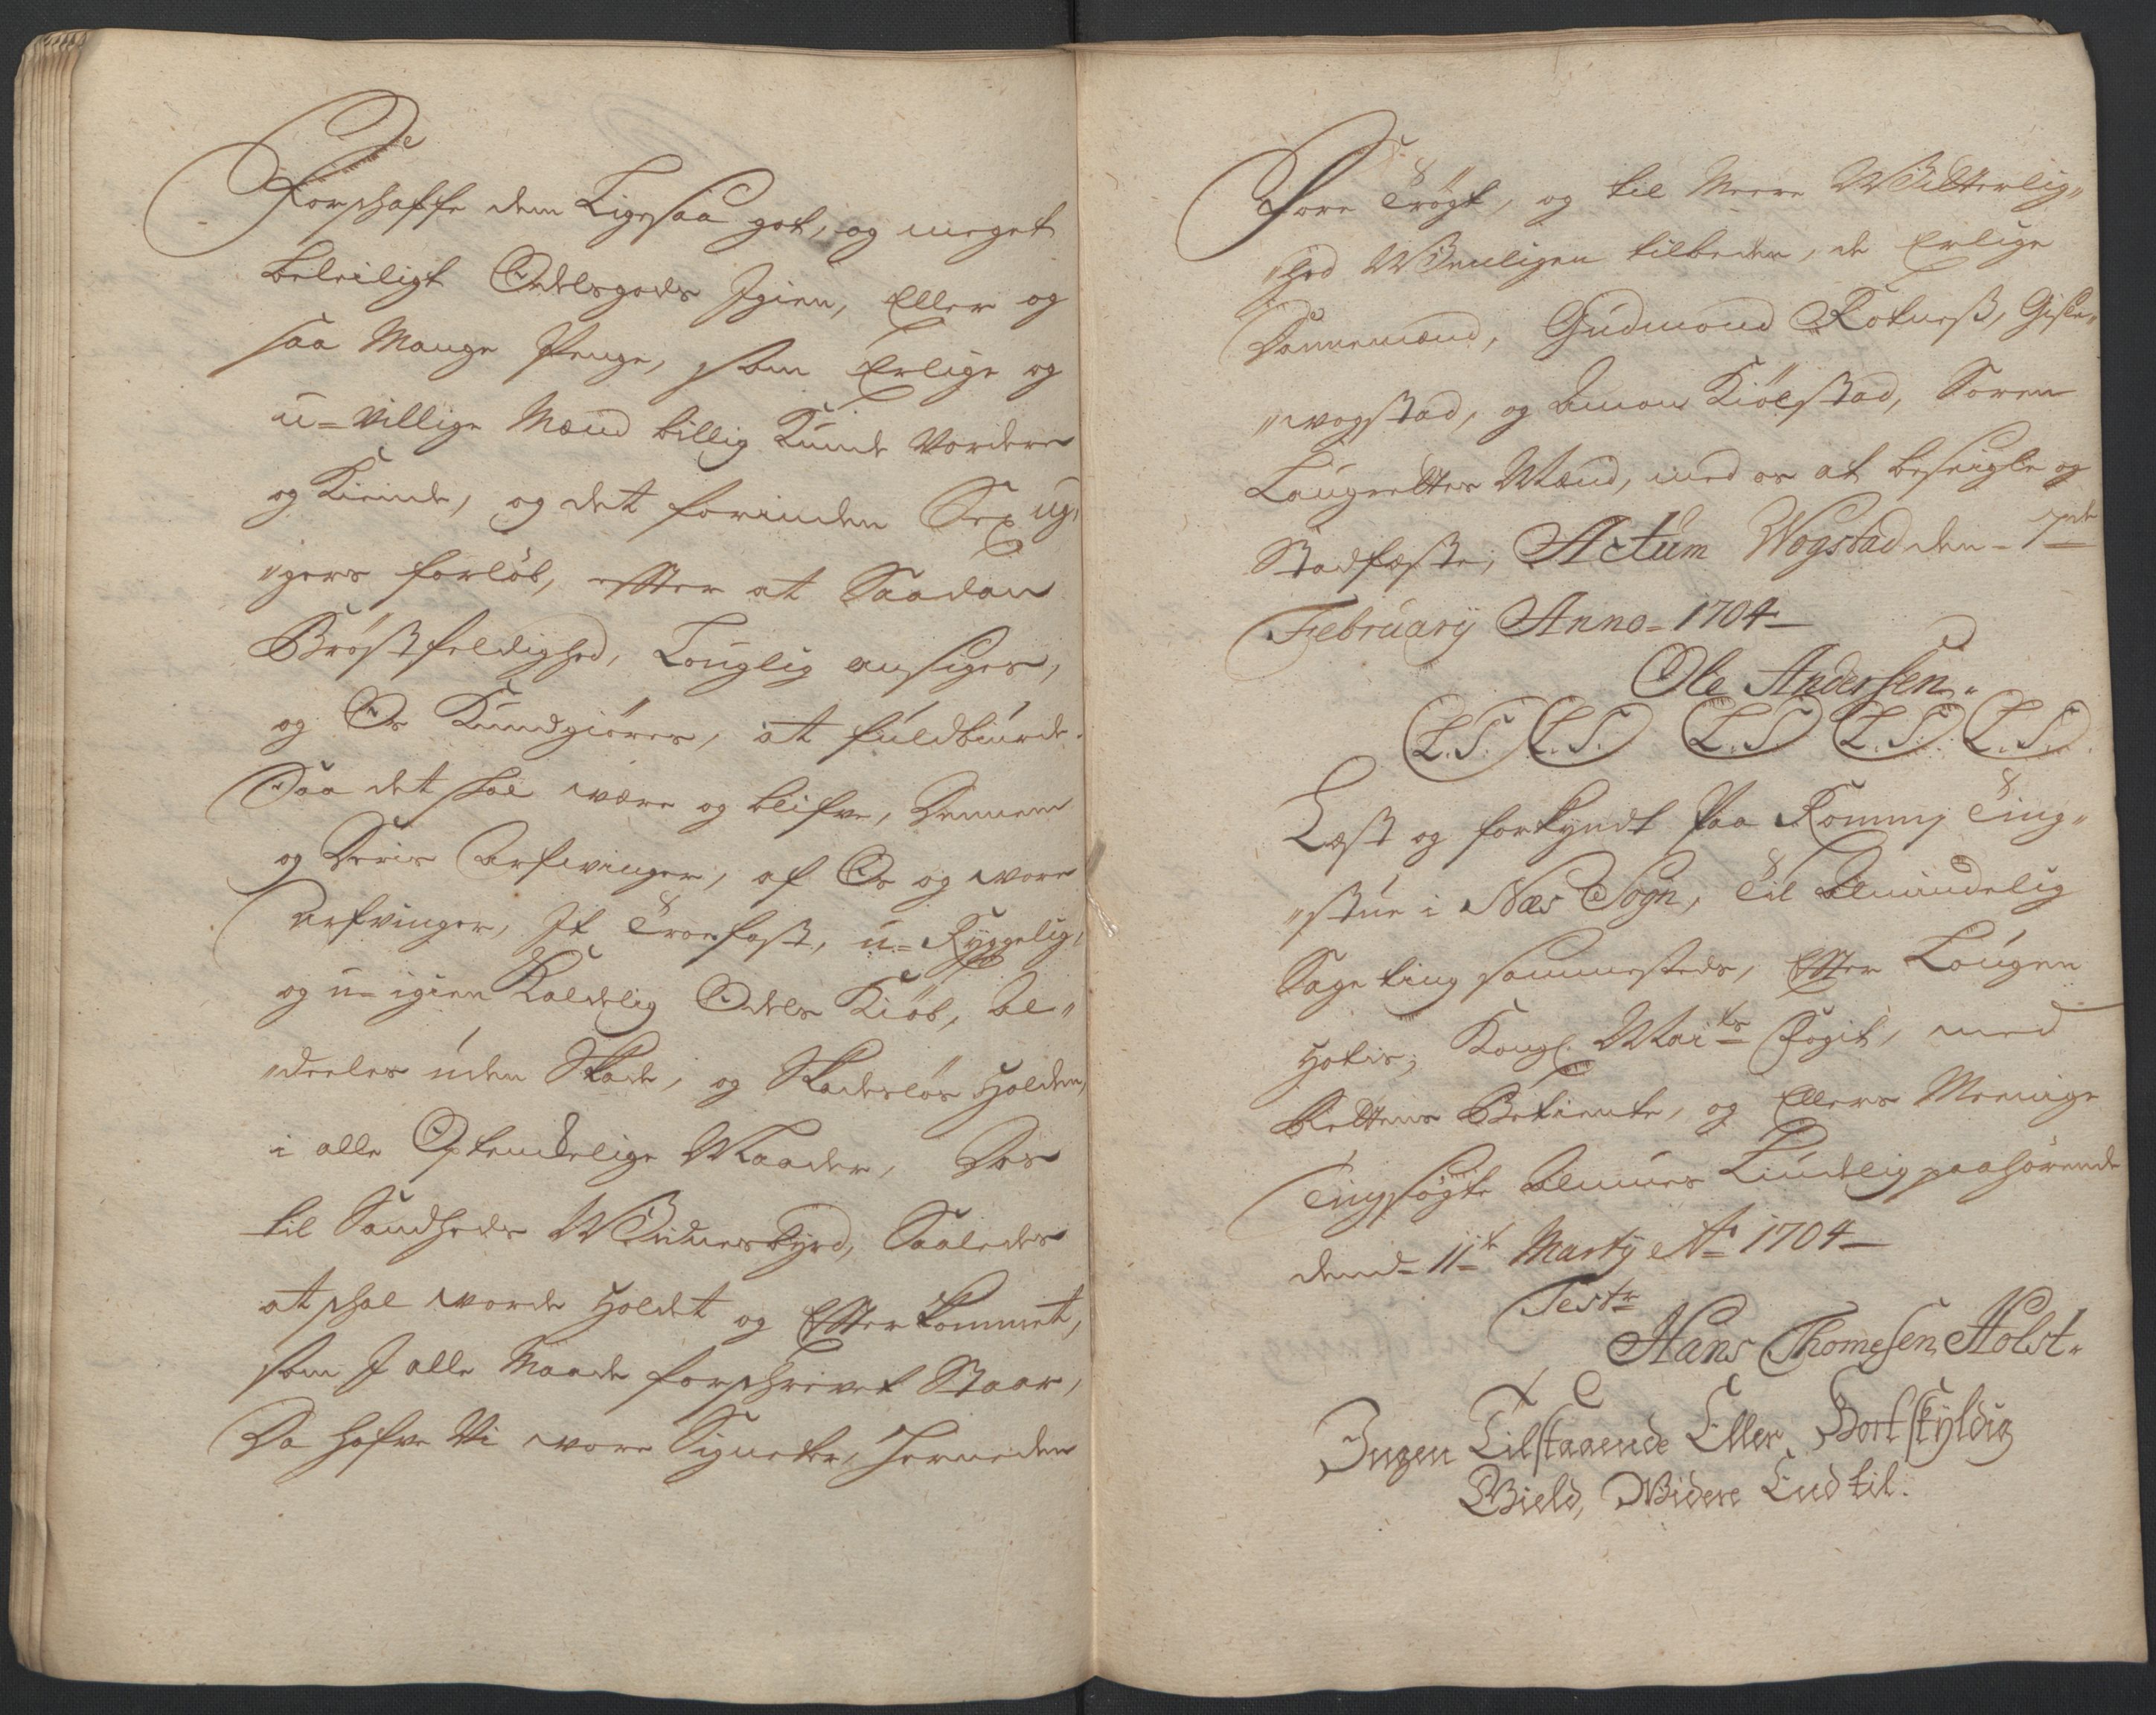 Forschaffe dem Ligesaa got, og meget
beleiligt Odelsgods Igien, Eller og
saa Mange Penge, som Erlige og
u-villige Mænd billig Kunde Vordere
og Kiende, og det forinden Sex ug,,
,,gers forløb, efter at Saadan
Brøstfeldighed, Louglig ansiges,
og Os Kundgiøres, at fuldbiurde.
Saa det skal være og blifve, Dennem
og Deris Arfvinger, af Os og vore
Arfvinger, It Troefast, u-Ryggelig,
og u-igien Kaldelig Odels Kiøb, Al,,
,,deeles uden Skade, og Skadesløs Holden,
i alle Optenkelige Maader, Des
til Sandheds Vidnesbyrd, Saaledes
at schal worde Holdet og Efterkommet,
som I alle Maade forschrevet Staar,
Da hafve Vi vore Signeter, herneden
Fore Trögt, og til Meere Witterlig,,
,,hed Wenligen tilbeden, de Erlige
Dannemænd, Gudmond Rotneß, Gisle,,
,,wogstad, og Amon Kiölstad, Soren
Laugrettes Mænd, med os at beseigle og
Stadfæste, Actum Wogstad den 7de
February Anno 1704
Ole Andersen
L.S. L.S. L.S. L.S. L.S.
Læst og forkyndt Paa Romnj Ting,,
,,stue i Næs Sogn, Til Almindelig
Sage ting sammesteds, Efter Lougen
Hotis, Kongl. Maits Fogit, med
Rettens Betiente, og Ellers Meenige
Tingsøgte Almues Liudelig paahørende
dend 11t Marty Ao 1704
Testr
Hans Thomesen Holst
Ingen Tilstaaende Eller Bortskyldig
Gield, Widere End til.